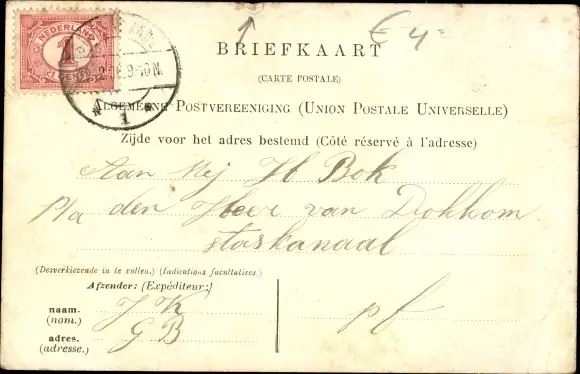 € 4=
NEDERLAND
1
CENT
9-10N.
1
BRIEFKAART
(CARTE POSTALE)
ALGEMEENE POSTVEREENIGING (UNION POSTALE UNIVERSELLE)
Zijde voor het adres bestemd (Côté réservé à l'adresse)
Aan Mej H Bok
P/a den Heer van Dokkom
Staskanaal
(Desverkiezende in te vullen.) (Indications facultatives.)
Afzender: (Expéditeur:)
naam. J K
(nom.)
adres. G B
(adresse.)
pf